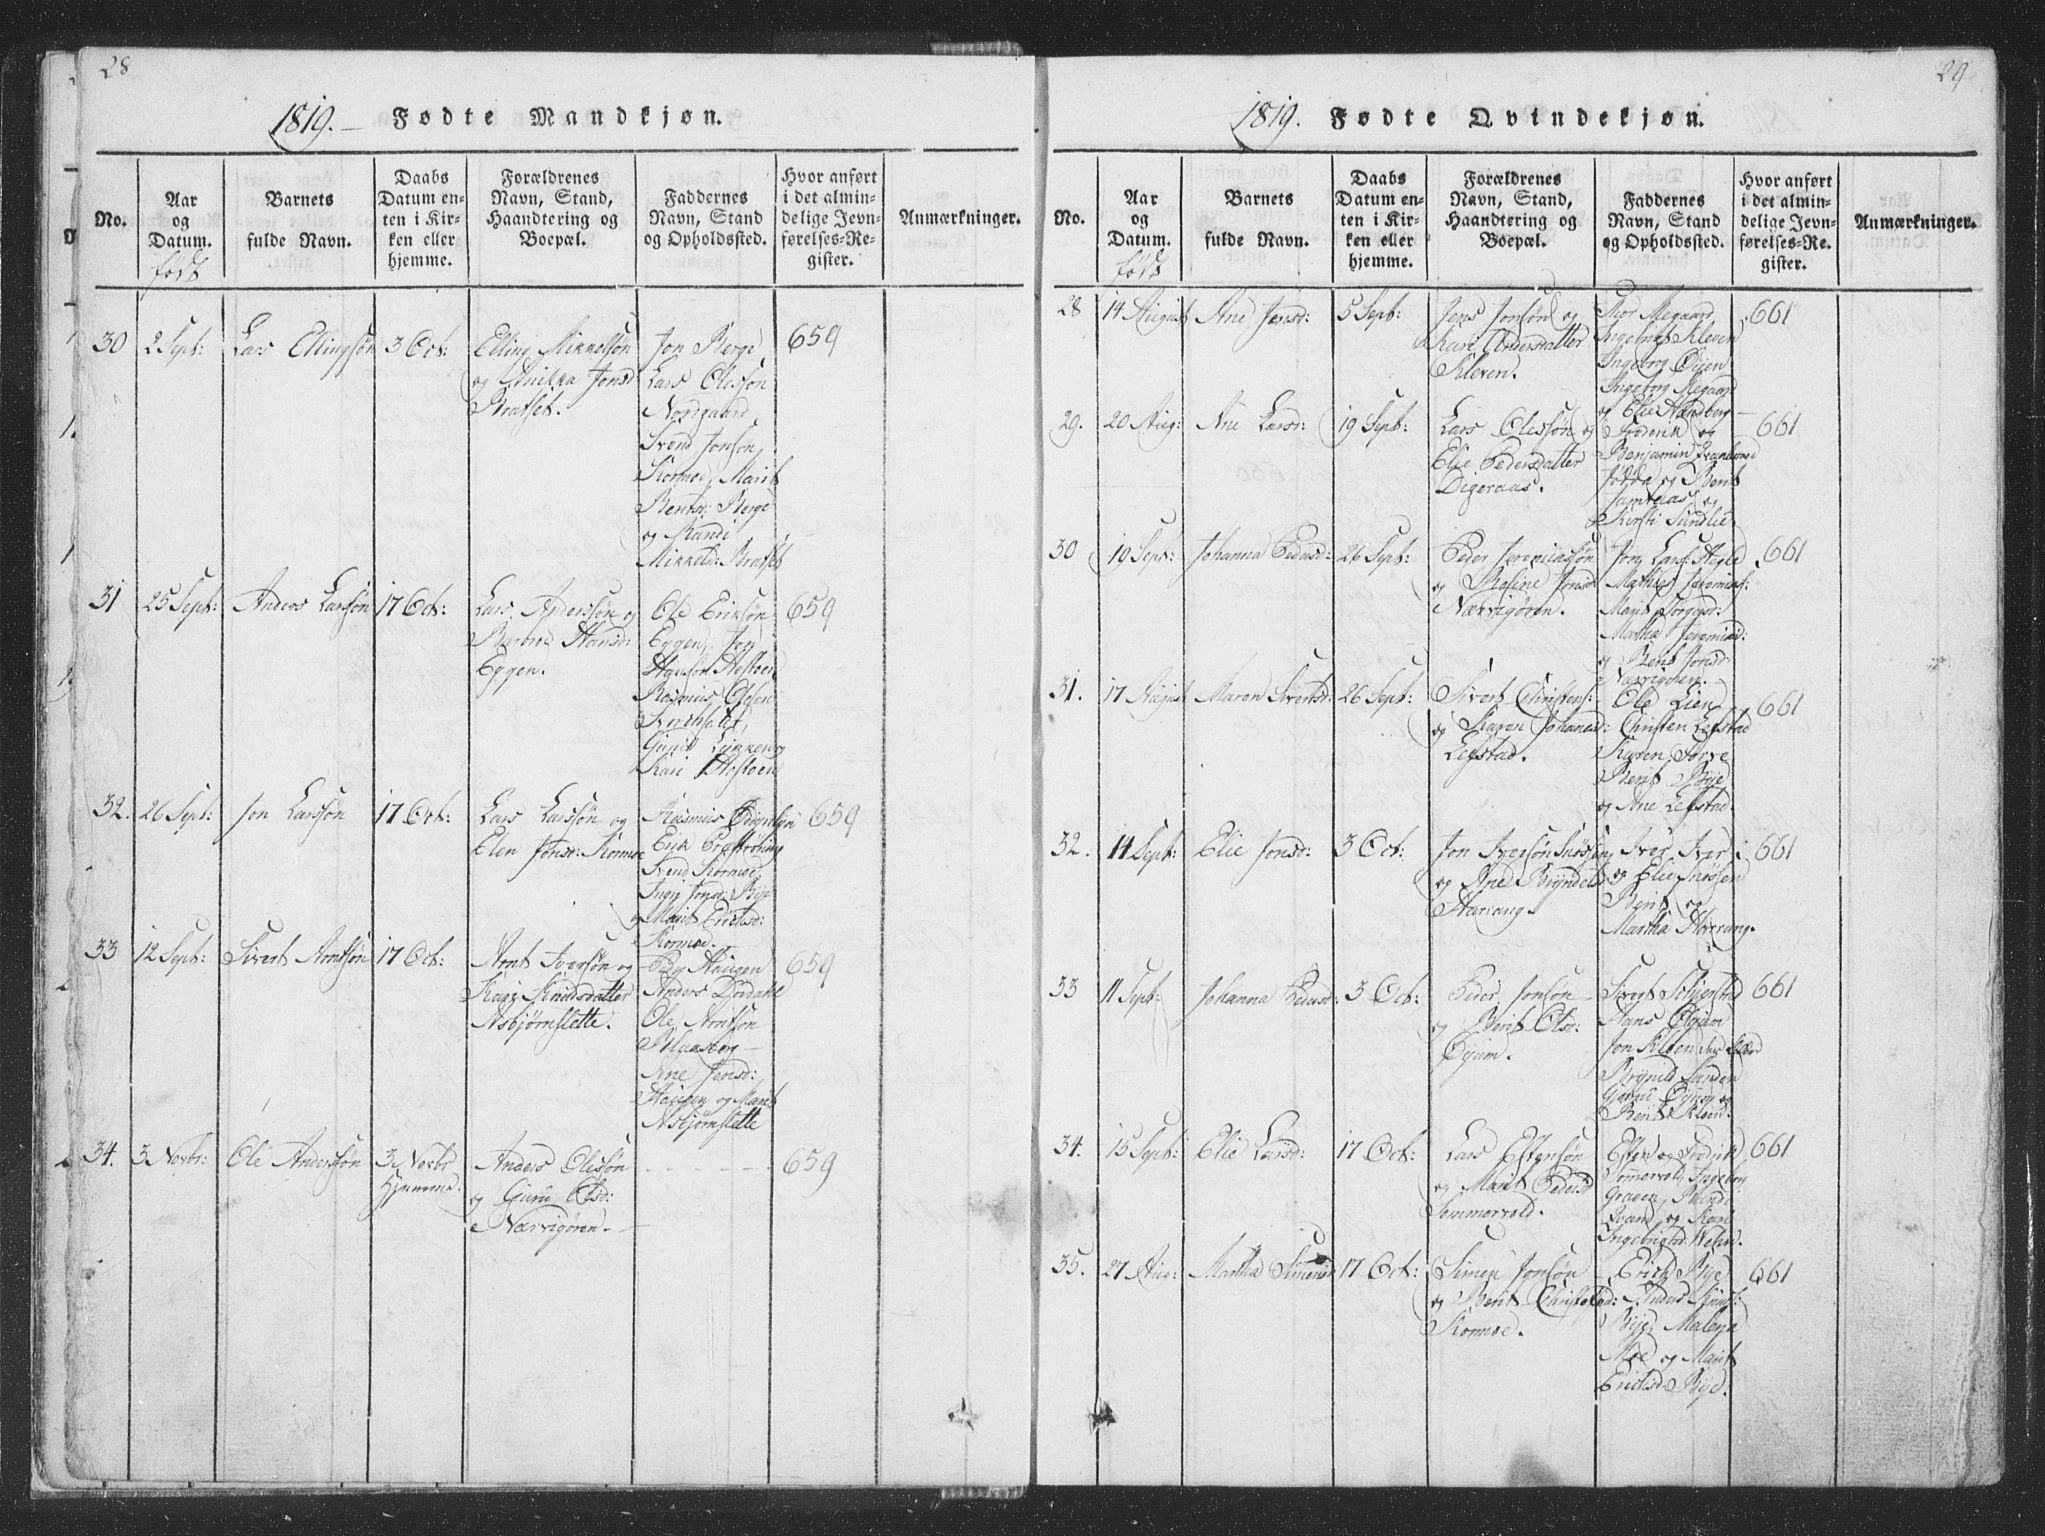 28
1819. — Fødte Mandkjøn.
No.
Aar
og
Datum.
født
Barnets
fulde Navn.
Daabs
Datum en-
ten i Kir-
ken eller
hjemme.
Forældrenes
Navn, Stand,
Haandtering og
Boepæl.
Faddernes
Navn, Stand
og Opholdssted.
Hvor anført
i det almin-
delige Jevn-
førelses-Re-
gister.
Anmærkninger.
30
2 Sept:
Lars Ellingsøn
3 Oct:
Elling Mikkelsøn
og Anikka Jonsd
Bratset.
Jon Berge
Lars Olessøn
Nordgaard
Svend Jonsøn
Kormoe, Marit
Bentsd: Berge
og Randi
Mikkelsd: Bratset
659
31
25 Sept:
Anders Larsøn
17 Oct:
Lars Anderssøn og
Barbroe Hansd:
Eggen.
Ole Eriksøn
Eggen, Jon
Hansøn Hostoen
Rasmus Olsen
Gunild
Kari Hostoen
659
32.
26 Sept:
Jon Larssøn
17 Oct:
Lars Larssøn og
Elen Jonsd: Kormoe
Rasmus
Erik
Svend Kormoe,
Ingr Jonsd: Bye
og Marit Ericksd:
Kormoe.
659
33
12 Sept:
Sivert Arntsøn
17 Oct:
Arnt Iversøn og
Kari Knudsdatter
Asbjørnslette.
Peer Haugen
Anders
Ole Arntsøn
Blaasberg —
Ane Jensd:
Haugen og Marit
Asbjørnslette
659
34.
3 Novbr:
Ole Anderssøn
3 Novbr
Hjemme.
Anders Olesøn
og Guru Olsd:
Nærvigøren. —
659
29
1819. Fødte Qvindekjøn.
No.
Aar
og
Datum.
født
Barnets
fulde Navn.
Daabs
Datum en-
ten i Kir-
ken eller
hjemme.
Forældrenes
Navn, Stand,
Haandtering og
Boepæl.
Faddernes
Navn, Stand
og Opholdssted.
Hvor anført
i det almin-
delige Jevn-
førelses-Re-
gister.
Anmærkninger.
28
14 August
Ane Jensd:
5 Sept:
Jens Jonsøn og
Kari Andersdatter
Kleven.
Megaard
Ingebrigt Kleven
Ingeborg Øyen
Ingeborg Megaard
og Elie Handberg
661
29.
20 Aug:
Ane Larsd:
19 Sept:
Lars Olessøn og
Elie Pedersdatter
Digeraas.
Frederik og
Benjamin
og Berit
Jamtaas og
Kirsti Sundlie
661
30
19 Sept:
Johanna Pedersd:
26 Sept:
Peder Jeremiassøn
og Resine Jonsd
Nærvigøren.
Jon Larss
Mathias Jeremias:
Marit
Martha Jeremiasd:
og Berit Jonsd
Nærvigøren.
661
31.
17 August
Maren Sivertsd:
26 Sept:
Sivert Christens:
og Karen Johanesd:
Lefstad.
Ole Lien
Christen Lefstad
Karen
Berit Bye
og Ane Lefstad
661
32.
14 Sept:
Elie Jonsd:
3 Oct:
Jon Iversøn
og Ane Bryndelsd
Iver Ivers:
og Elie
Berit og
Martha
661
33
11 Sept:
Johanna Pedersd:
3 Oct:
Peder Jonsøn
og Berit Olsd:
Øyum.
Sivert
Hans Øyum
Jon Kleven
Brynild Sanden
Guru Øyum og
Berit
661
34.
15 Sept:
Elie Larsd:
17 Oct:
Lars Estensøn
og Marit Pedersd
Sommervold.
Esten og
Sommervold, Ingeborg
Graven,
og Kari
661
35.
27 Aug:
Martha Simensd
17 Oct:
Simen Jonsøn
og Berit Christofd:
Kormoe.
Erich Bye
Anders
Bye, Malena
Moe og Marit
Ericksd: Bye.
661